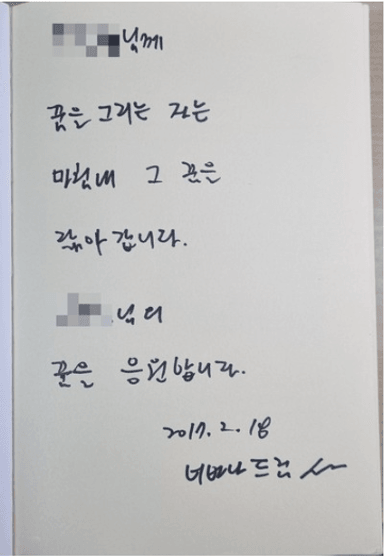 님께
꿈을 그리는 자는
마침내 그 꿈을
닮아 갑니다.
님의
꿈을 응원합니다.
2017. 2. 18
드림